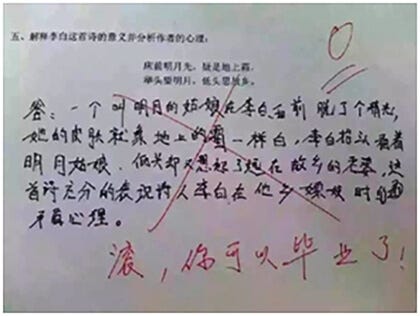 五、解释李白这首诗的意义并分析作者的心理:
0
床前明月光,疑是地上霜。
举头望明月,低头思故乡。
答:一个叫明月的姑娘在李白面前脱了个精光,
她的皮肤就象地上的霜一样白,李白抬头看着
明月姑娘,低头却又想起了远在故乡的老婆,这
首诗充分的表现诗人李白在他乡嫖娼时的
矛盾心理。
滚,你可以毕业了!